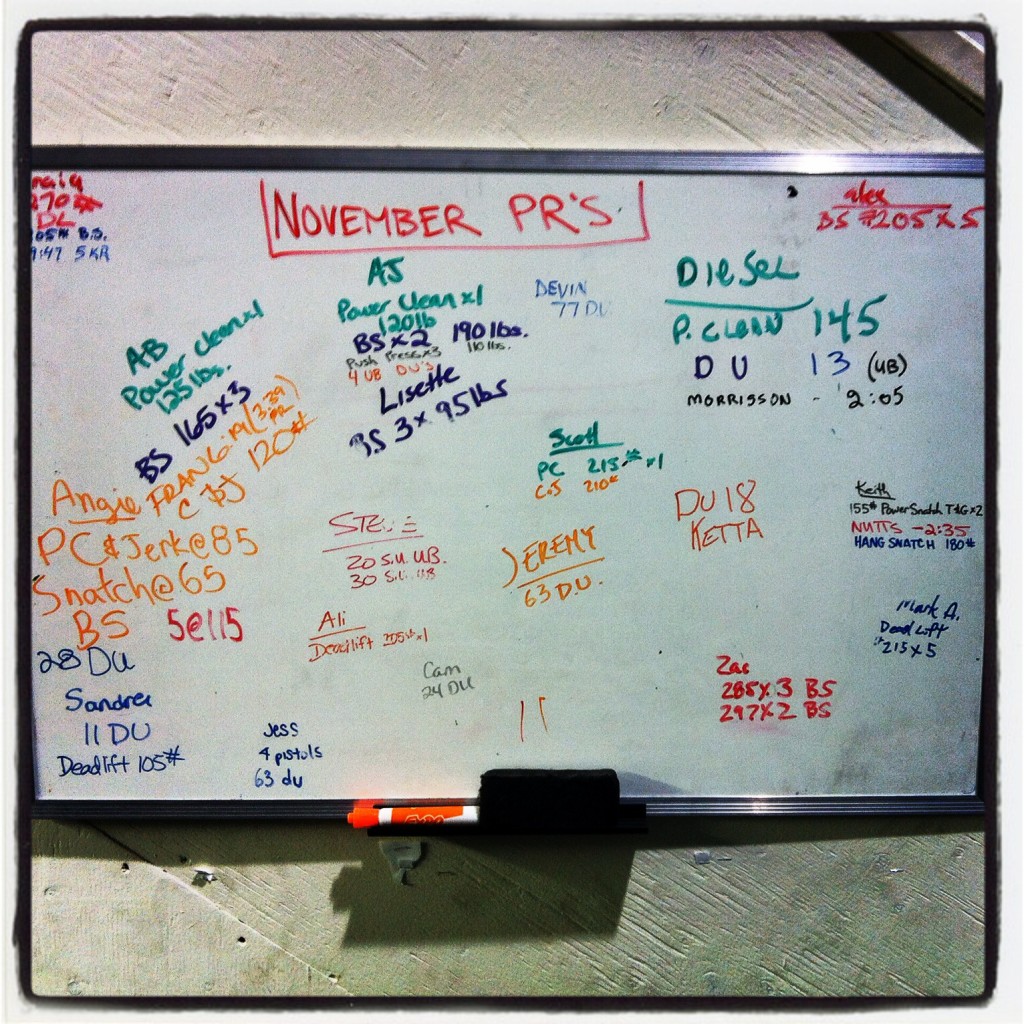 NOVEMBER PR'S
270#
DL
B.S.
5KR
alex
BS 205 x 5
AB
Power clean x1
125 lbs.
BS 165 x 3
AJ
Power Clean x1
120 lb
BS x 2 190 lbs.
Push Press x3 110 lbs.
4 UB DU'S
Lisette
BS 3 x 95 lbs
DEVIN
77 DU
DIESEL
P. CLEAN 145
DU 13 (UB)
MORRISSON - 2:05
Angie FRAN 6:19 (3:39 PR)
C & J 120#
PC & Jerk @ 85
Snatch @ 65
BS 5@115
28 DU
Scott
PC 215# x1
210#
STEVE
20 S.U. UB.
30 S.U. UB
JEREMY
63 D.U.
DU 18
KETTA
Keith
155# Power Snatch T&G x2
NUTTS - 2:35
HANG SNATCH 180#
Ali
Deadlift 205# x1
Cam
24 DU
Mark A.
Dead Lift
215 x 5
Zac
285 x 3 BS
297 x 2 BS
Sandra
11 DU
Deadlift 105#
Jess
4 pistols
63 du
EXPO